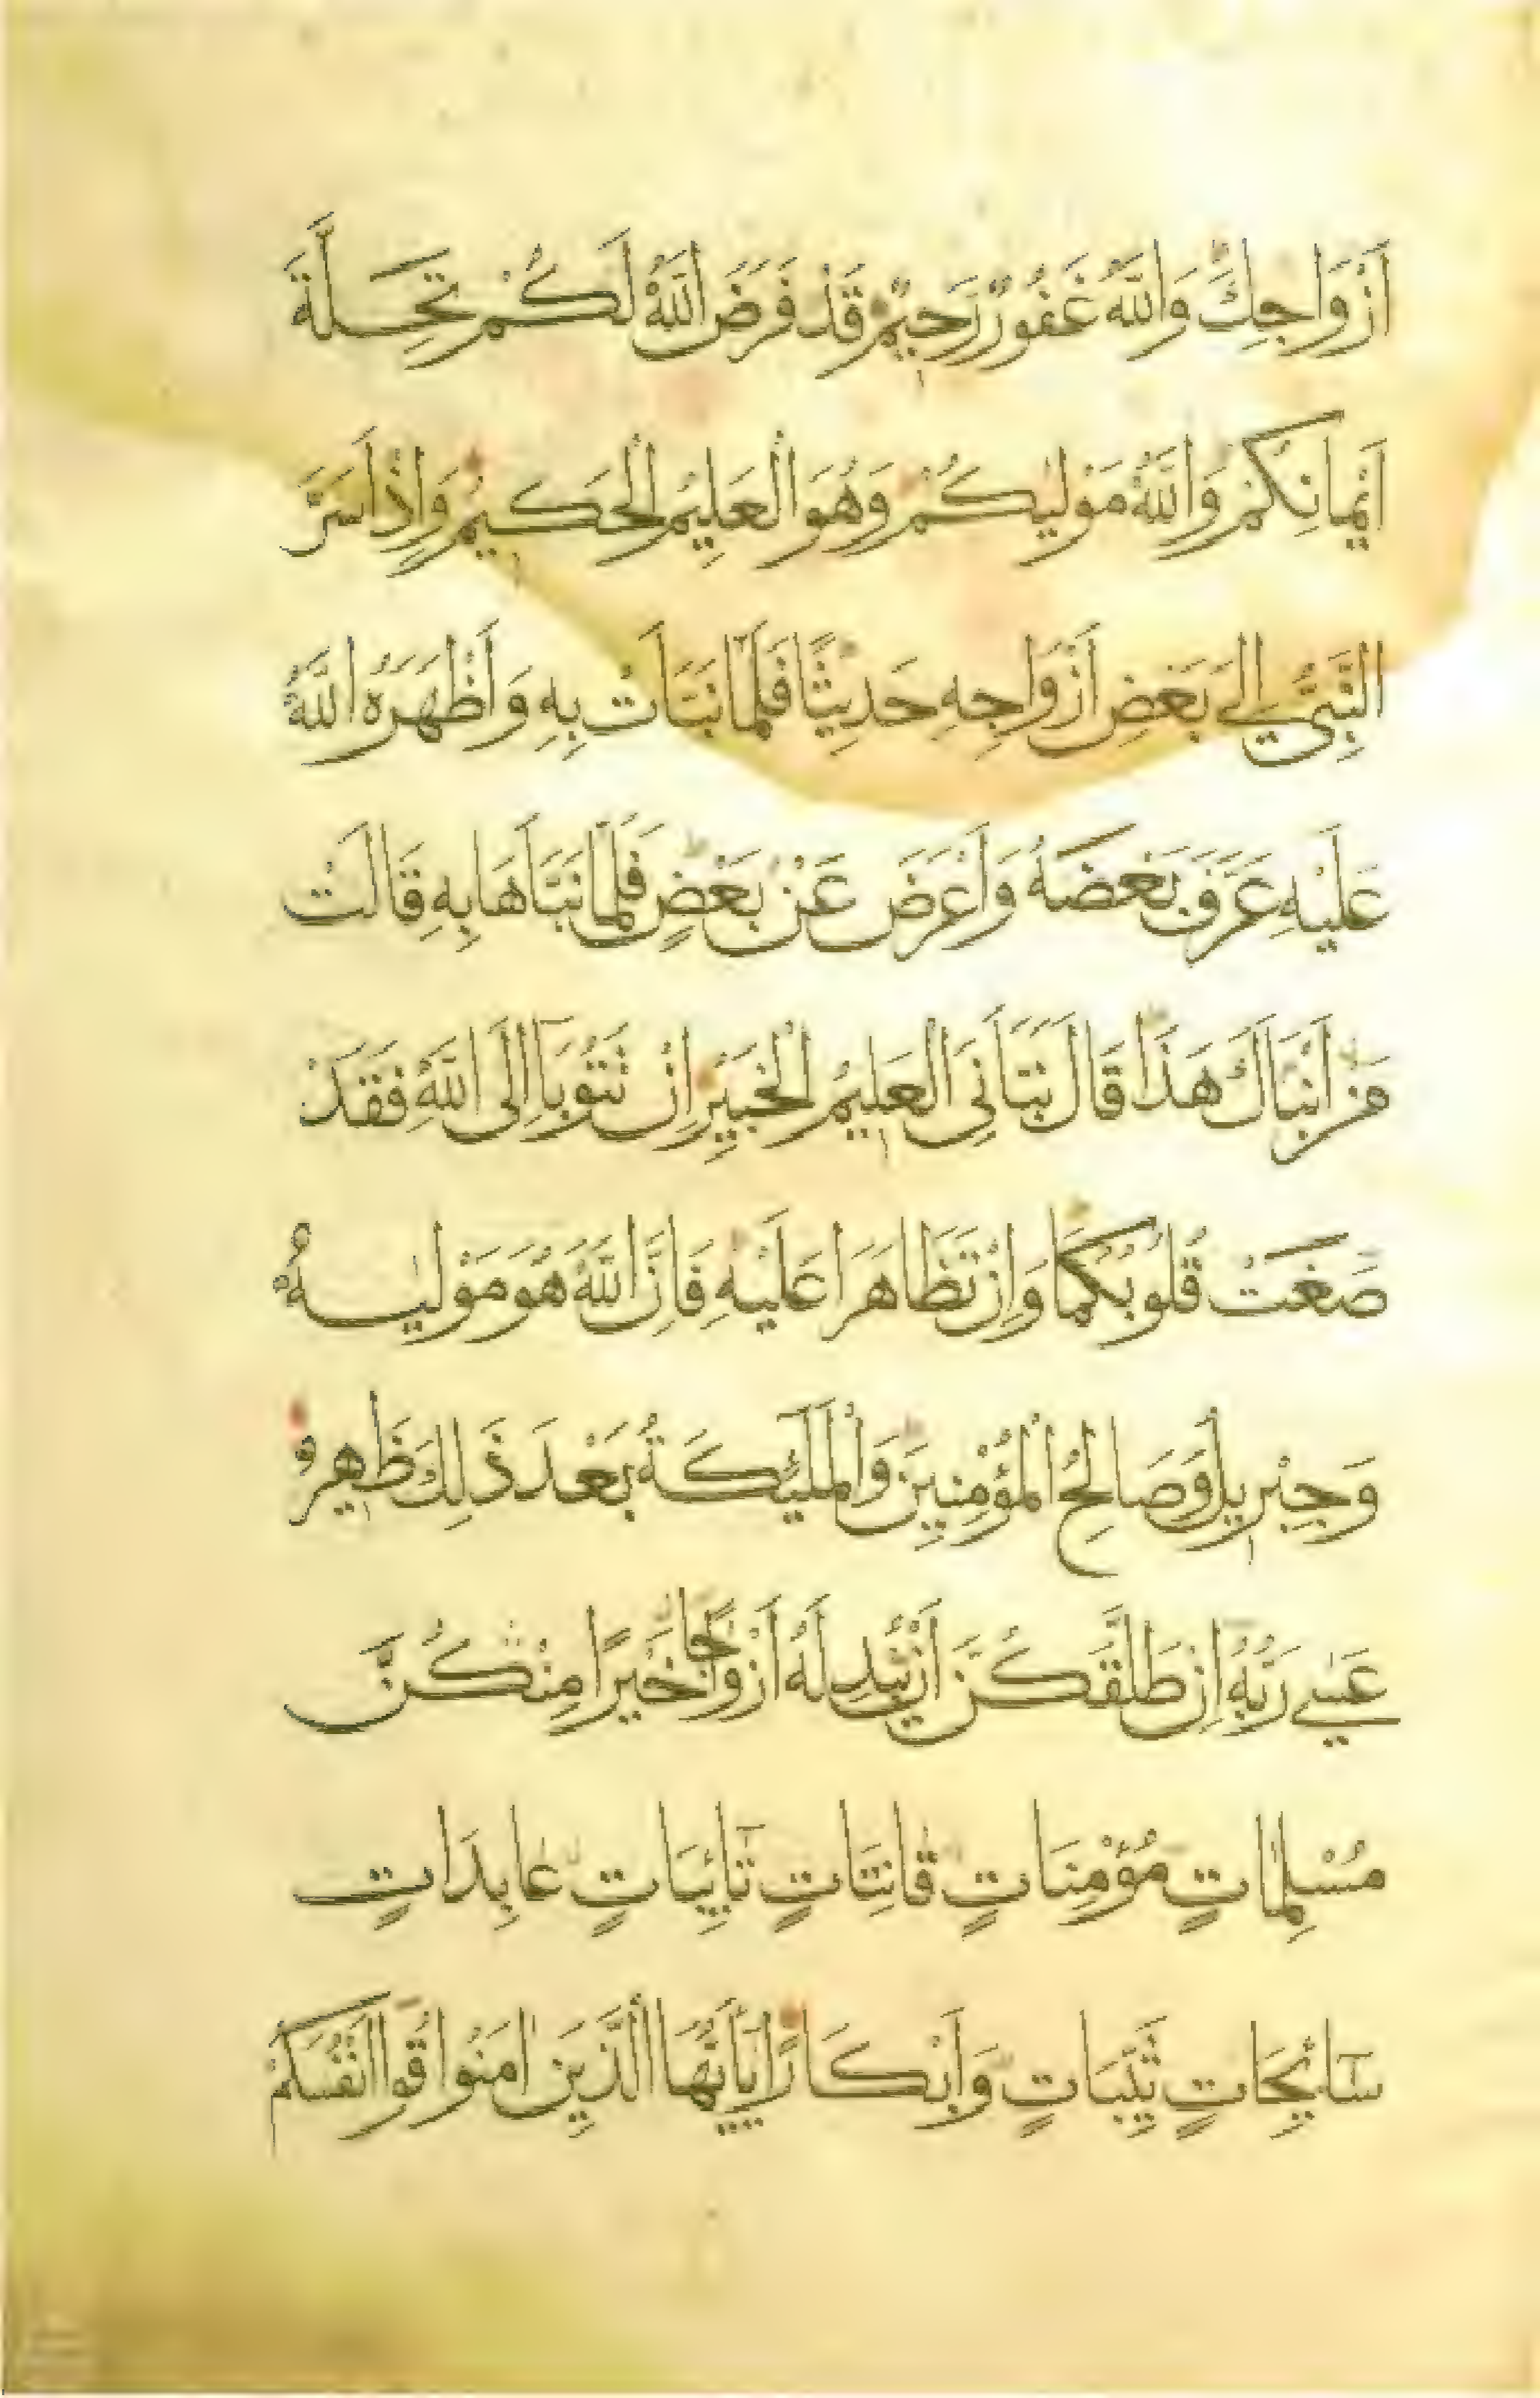 اَزْوَاجِكَ وَاللّٰهُ غَفُورٌ رَحِيمٌ قَدْ فَرَضَ اللّٰهُ لَكُمْ تَحِلَّةَ
اَيْمَانِكُمْ وَاللّٰهُ مَوْلٰيكُمْ وَهُوَ الْعَلِيمُ الْحَكِيمُ وَاِذْ اَسَرَّ
النَّبِيُّ اِلٰى بَعْضِ اَزْوَاجِهِ حَدِيثًا فَلَمَّا نَبَّاَتْ بِهِ وَاَظْهَرَهُ اللّٰهُ
عَلَيْهِ عَرَّفَ بَعْضَهُ وَاَعْرَضَ عَنْ بَعْضٍ فَلَمَّا نَبَّاَهَا بِهِ قَالَتْ
مَنْ اَنْبَاَكَ هَذَا قَالَ نَبَّاَنِيَ الْعَلِيمُ الْخَبِيرُ اِنْ تَتُوبَا اِلَى اللّٰهِ فَقَدْ
صَغَتْ قُلُوبُكُمَا وَاِنْ تَظَاهَرَا عَلَيْهِ فَاِنَّ اللّٰهَ هُوَ مَوْلٰيهُ
وَجِبْرِيلُ وَصَالِحُ الْمُؤْمِنِينَ وَالْمَلٰٓئِكَةُ بَعْدَ ذَلِكَ ظَهِيرٌ
عَسٰى رَبُّهُ اِنْ طَلَّقَكُنَّ اَنْ يُبْدِلَهُ اَزْوَاجًا خَيْرًا مِنْكُنَّ
مُسْلِمَاتٍ مُؤْمِنَاتٍ قَانِتَاتٍ تَآئِبَاتٍ عَابِدَاتٍ
سَآئِحَاتٍ ثَيِّبَاتٍ وَاَبْكَارًا يَآاَيُّهَا الَّذِينَ اٰمَنُوا قُوٓا اَنْفُسَكُمْ